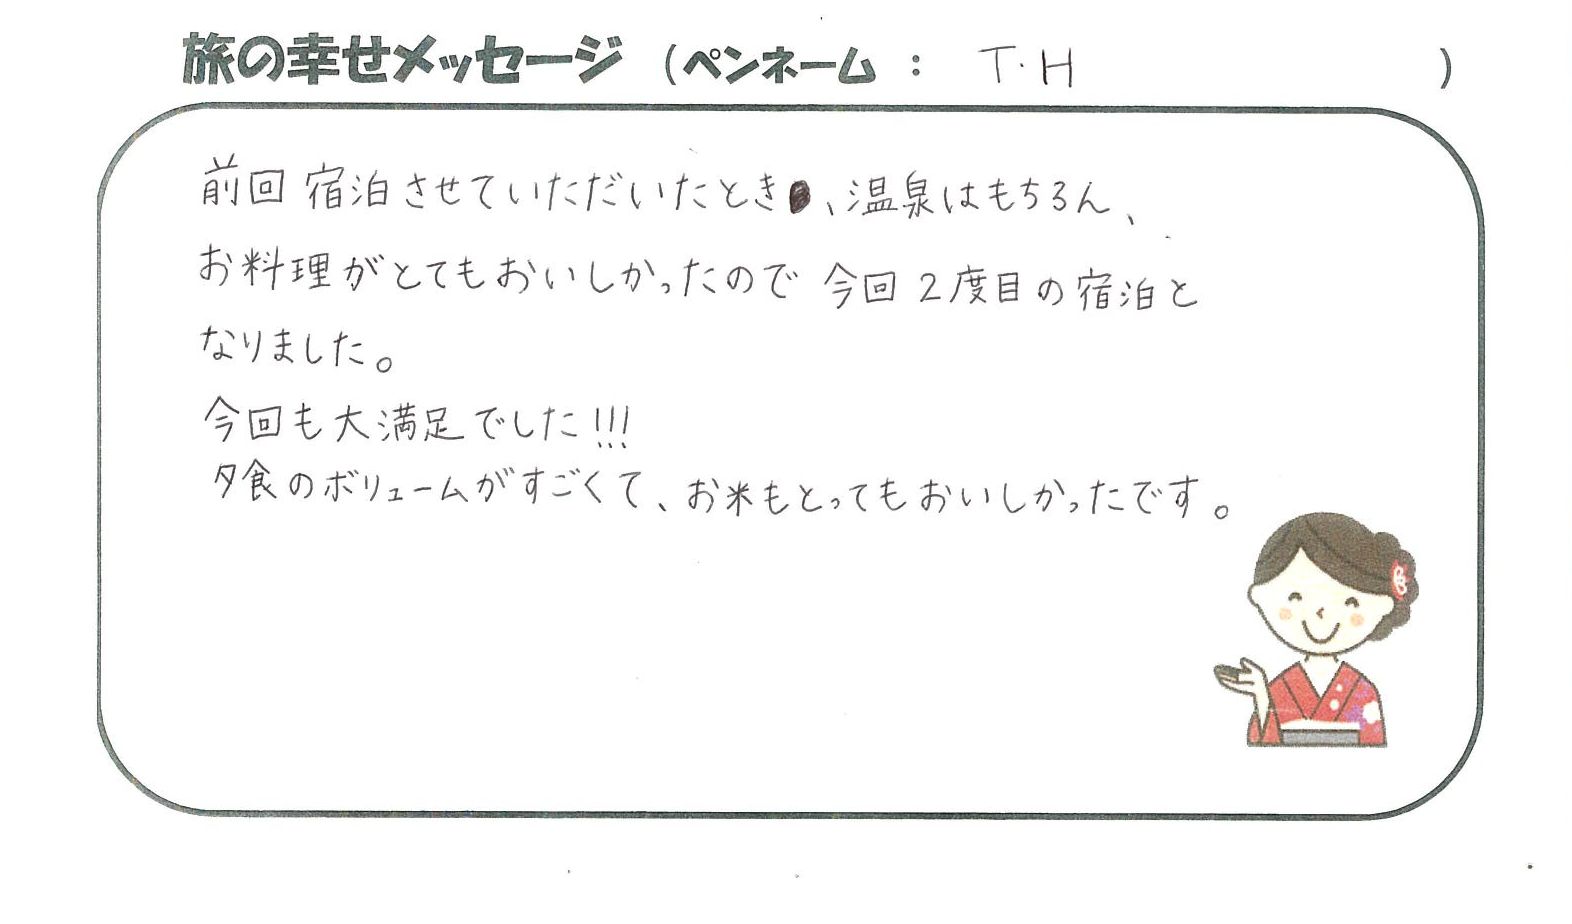 旅の幸せメッセージ (ペンネーム : T.H )
前回宿泊させていただいたとき、温泉はもちろん、
お料理がとてもおいしかったので今回2度目の宿泊と
なりました。
今回も大満足でした!!!
夕食のボリュームがすごくて、お米もとってもおいしかったです。